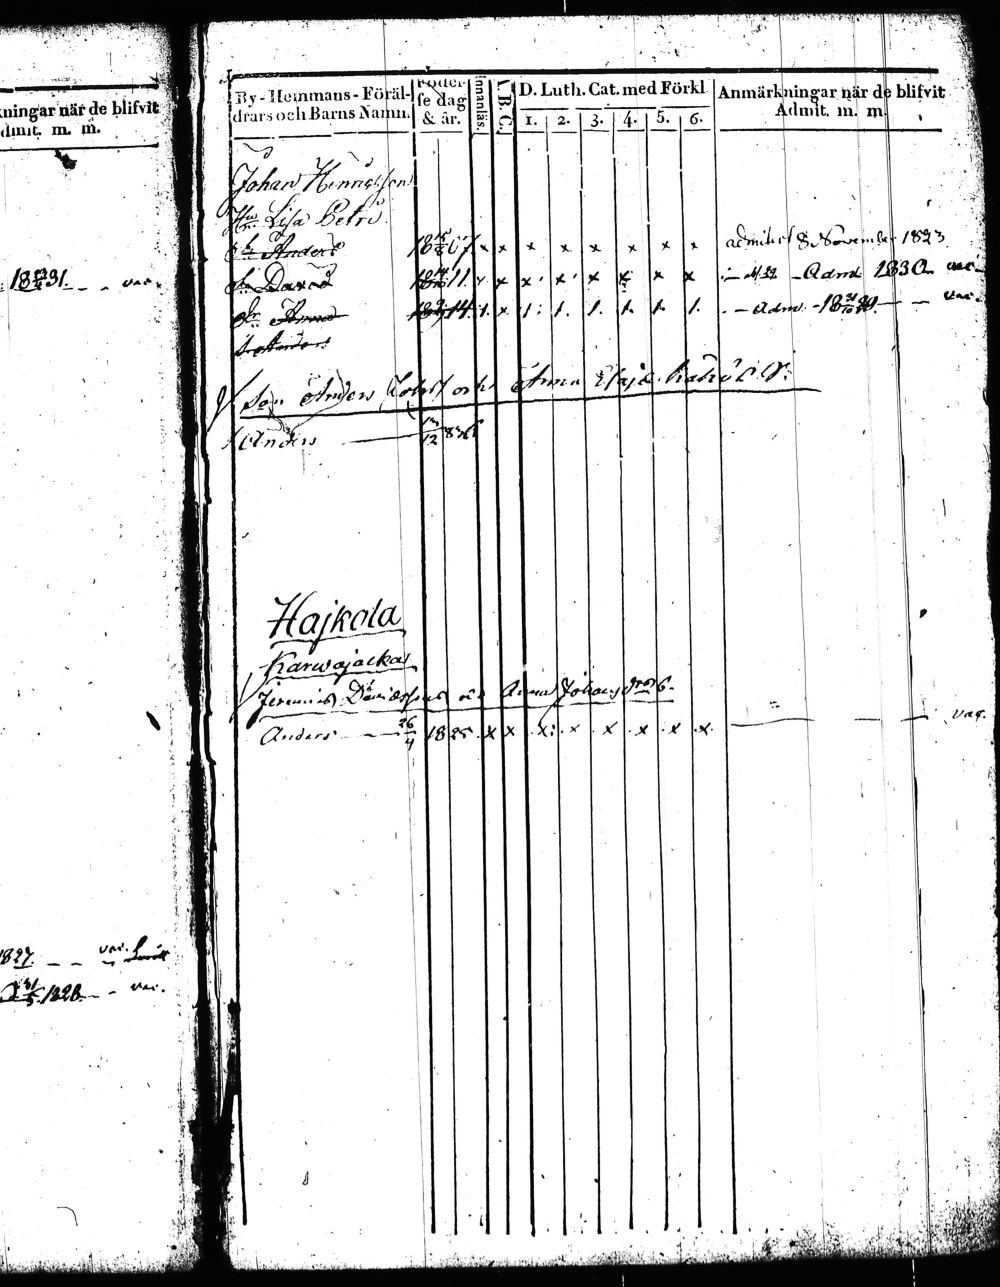 kningar när de blifvit
dmit. m. m.
1831. - - var.
1827. - - var.
31/5 1828. - - var.
By-Hemmans-Föräl-
drars och Barns Namn.
Föder-
se dag
& år.
innanläs.
A.B.C.
D. Luth. Cat. med Förkl
1. 2. 3. 4. 5. 6.
Anmärkningar när de blifvit
Admit. m. m.
Johan Henricsson
Hu Lisa Petri
Sn Anders 18 07 x x x x x x x x admitt 8 November 1823
Sn David 18 11 x x x x x x x x Adm 1830 var
Dr Anna 14 1. 1. 1. 1. 1. 1. 1. Adm. 18 - var.
S Anders
Son Anders och Anna
Anders 13/12 836
Hajkola
Karwajackas
Jeremias Davidsson och Anna Johans
Anders 26/4 1825 x x x x x x x x var.